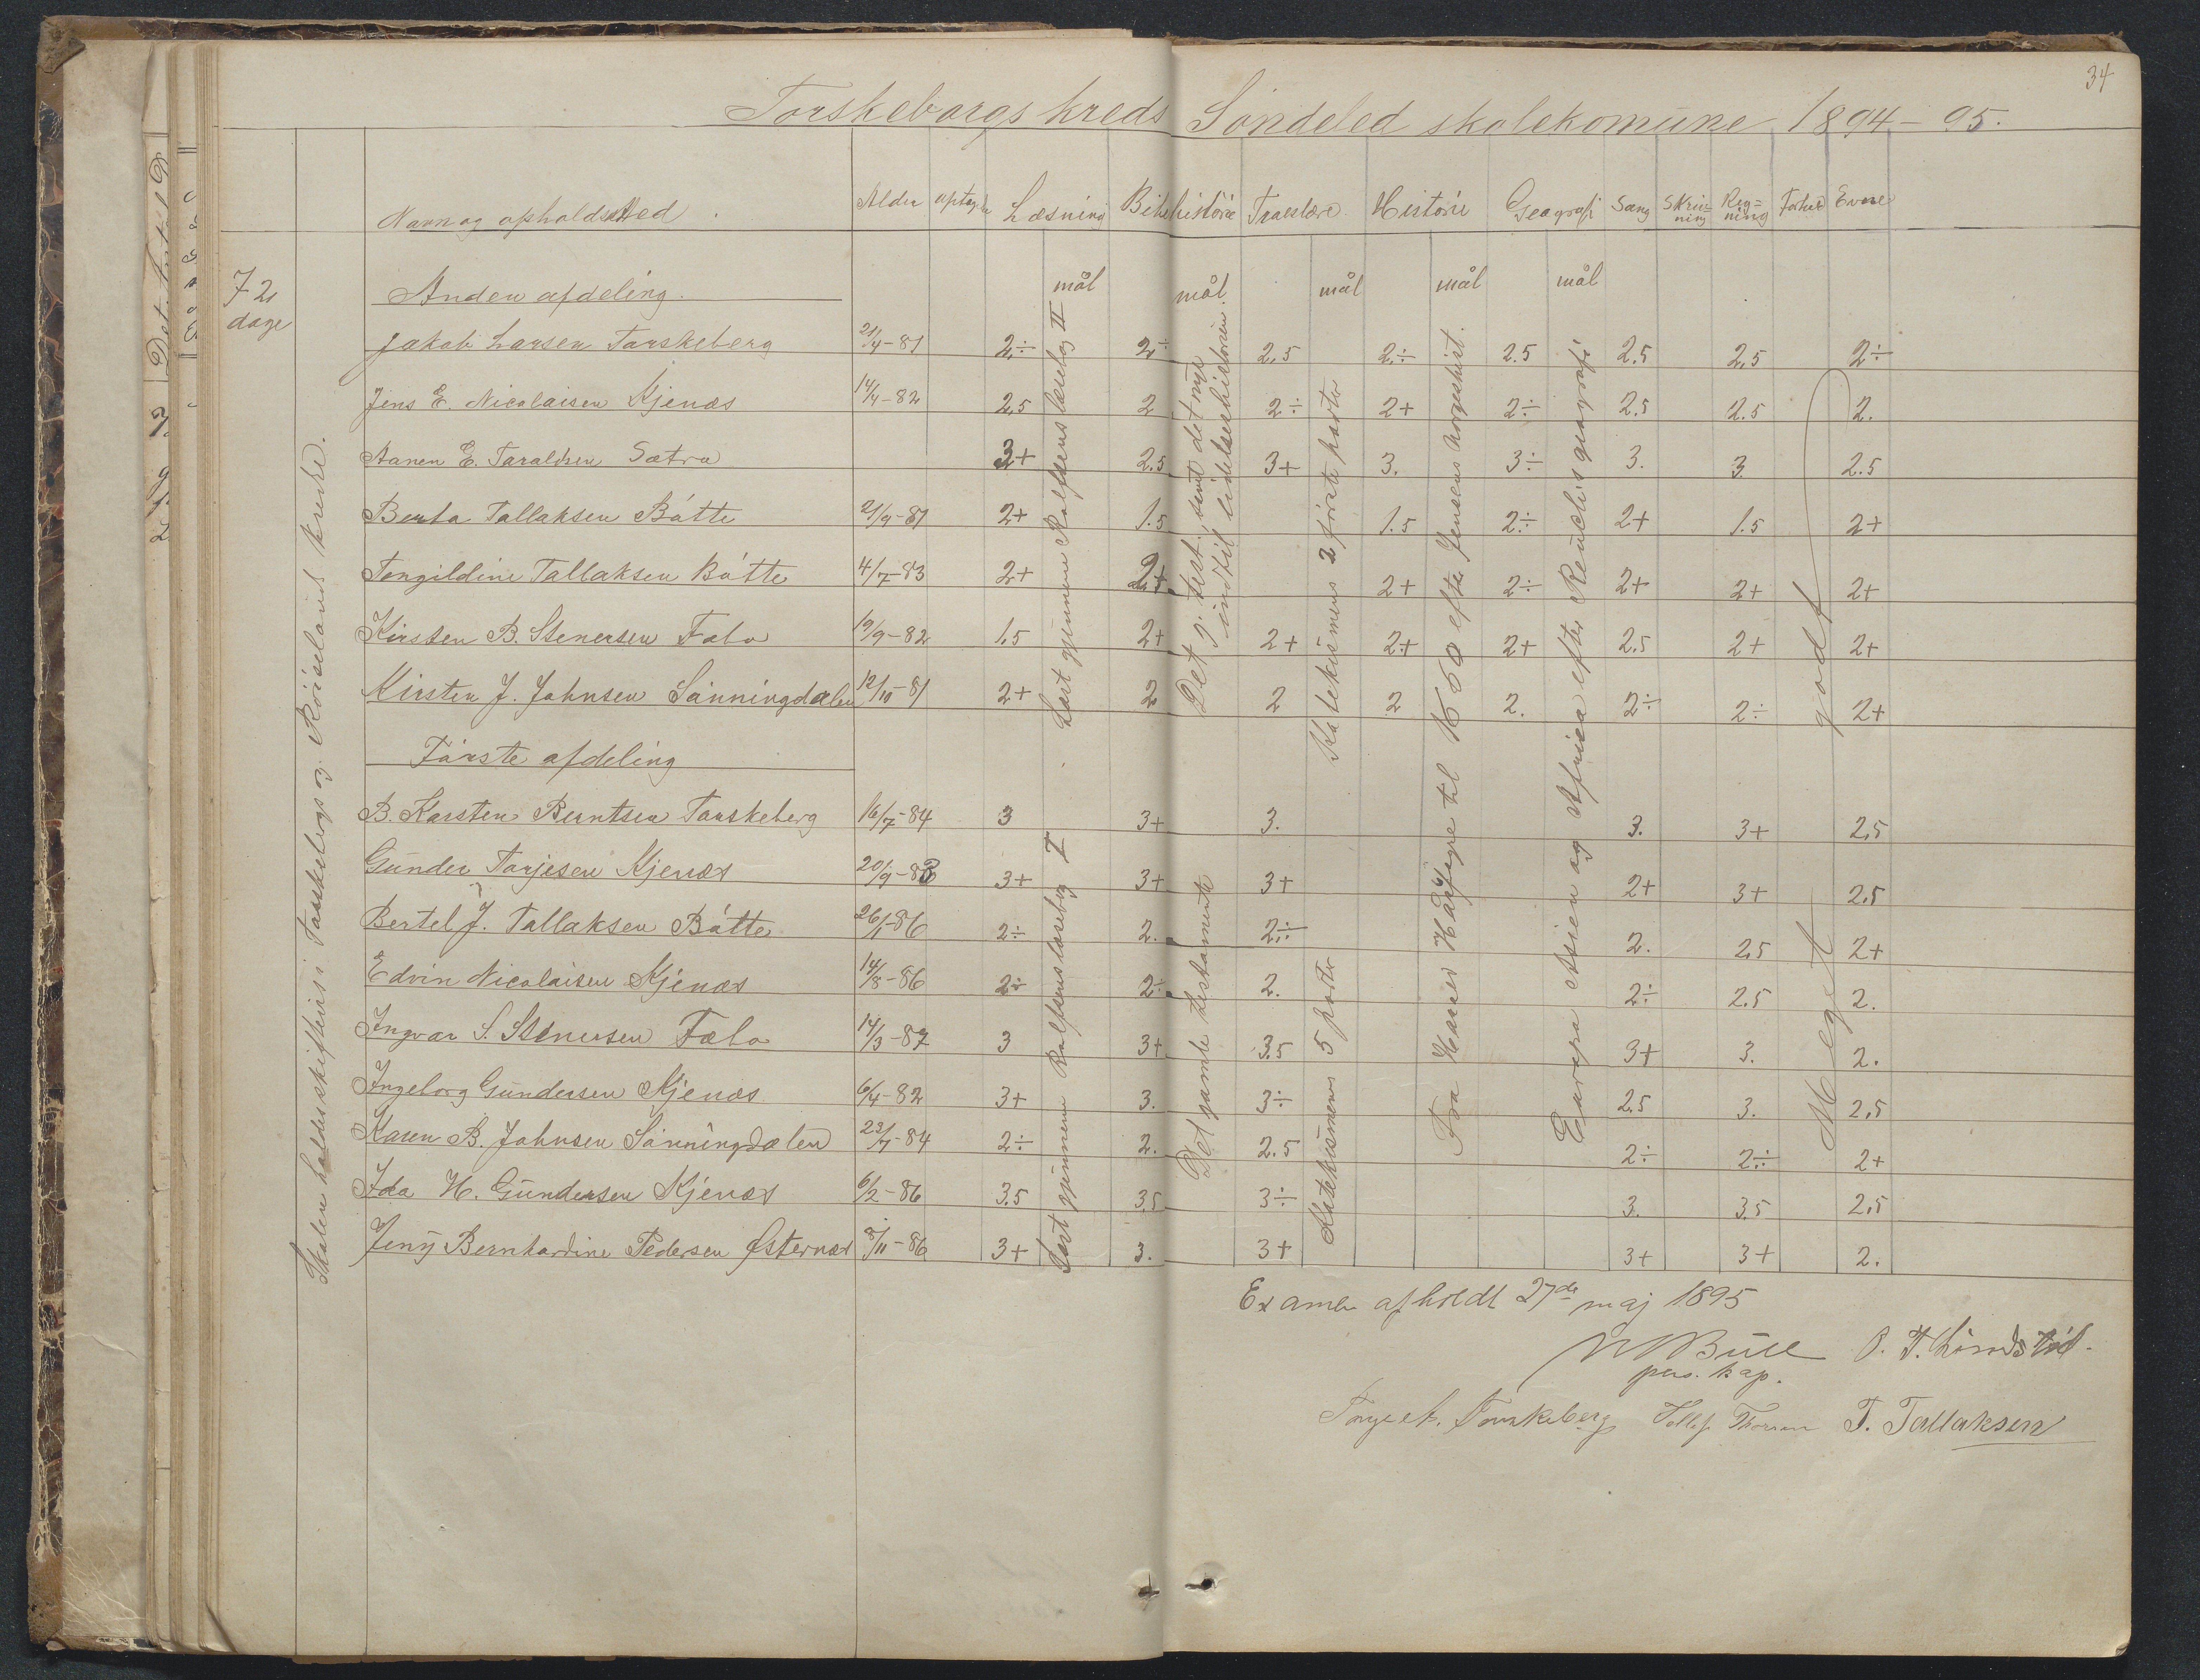 34
Torskebergs kreds Söndeled skolekomüne 1894-95.
Navn og opholdssted. Alder optagen Læsning Bibelhistörie Troeslære Histörie Geografi Sang Skriv=ning Reg=ning Forhold Evne
72 dage
Anden afdeling. mål mål. mål mål mål
Jakob Larsen Torskeberg 21/4-81 2÷ 2÷ 2,5 2÷ 2.5 2.5 2,5 2÷
Jens E. Nicolaisen Kjenæs 14/4-82 2,5 2 2÷ 2+ 2÷ 2.5 2.5 2.
Aanen E. Taraldsen Sætra 3+ 2.5 3+ 3. 3÷ 3. 3 2.5
Berta Tallaksen Båtte 21/9-81 2+ 1.5 1.5 2÷ 2+ 1.5 2+
Tengildine Tallaksen Båtte 4/7-83 2+ 2+ 2+ 2÷ 2+ 2+ 2+
Kirsten B. Stenersen Fæbo 19/9-82 1.5 2+ 2+ 2+ 2+ 2.5 2+ 2+
Kirsten J. Johnsen Sönningdalen 12/10-81 2+ 2 2 2 2. 2÷ 2÷ 2+
Förste afdeling
B. Karsten Berntsen Torskeberg 16/7-84 3 3+ 3. 3. 3+ 2,5
Günder Tarjesen Kjenæs 20/9-83 3+ 3+ 3+ 2+ 3+ 2,5
Bertel J. Tallaksen Båtte 26/1-86 2÷ 2. 2÷ 2. 2,5 2+
Edvin Nicolaisen Kjenæs 14/8-86 2÷ 2÷ 2. 2÷ 2.5 2.
Ingvar S. Stenersen Fæbo 14/3-87 3 3+ 3.5 3+ 3. 2.
Ingeborg Gündersen Kjenæs 6/4-82 3+ 3. 3÷ 2.5 3. 2,5
Karen B. Johnsen Sönningdalen 23/7-84 2÷ 2. 2.5 2÷ 2÷ 2+
Ida H. Gündersen Kjenæs 6/2-86 3.5 3,5 3÷ 3. 3.5 2,5
Jeny Bernhardine Pedersen Østernæs 8/11-86 3+ 3. 3+ 3+ 3+ 2.
Skolen holdes skiftevis i Torskebergs og Röiselands kreds.
Læst gjennem Rolfsens læsebog II
Det g. test. samt det nye indtil lidelseshistorien
Katekismens 2 förste parter
Fra Harald Hårfagre til 1660 efter Jensens norgeshist.
Europa Asien og Afrika efter Reüschs geografi
Meget godt
Læst gjennem Rolfsens læsebog I
Det gamle testamente
Katekismens 5 parter
Examen afholdt 27de maj 1895
Büll pers. kap.
Torskeberg T. Tallaksen